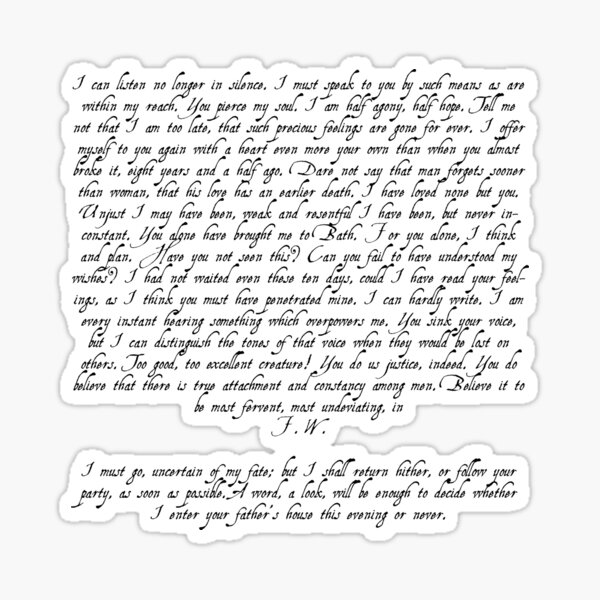 I can listen no longer in silence. I must speak to you by such means as are
within my reach. You pierce my soul. I am half agony, half hope. Tell me
not that I am too late, that such precious feelings are gone for ever. I offer
myself to you again with a heart even more your own than when you almost
broke it, eight years and a half ago. Dare not say that man forgets sooner
than woman, that his love has an earlier death. I have loved none but you.
Unjust I may have been, weak and resentful I have been, but never in-
constant. You alone have brought me to Bath. For you alone, I think
and plan. Have you not seen this? Can you fail to have understood my
wishes? I had not waited even these ten days, could I have read your feel-
ings, as I think you must have penetrated mine. I can hardly write. I am
every instant hearing something which overpowers me. You sink your voice,
but I can distinguish the tones of that voice when they would be lost on
others. Too good, too excellent creature! You do us justice, indeed. You do
believe that there is true attachment and constancy among men. Believe it to
be most fervent, most undeviating, in
F. W.
I must go, uncertain of my fate; but I shall return hither, or follow your
party, as soon as possible. A word, a look, will be enough to decide whether
I enter your father's house this evening or never.